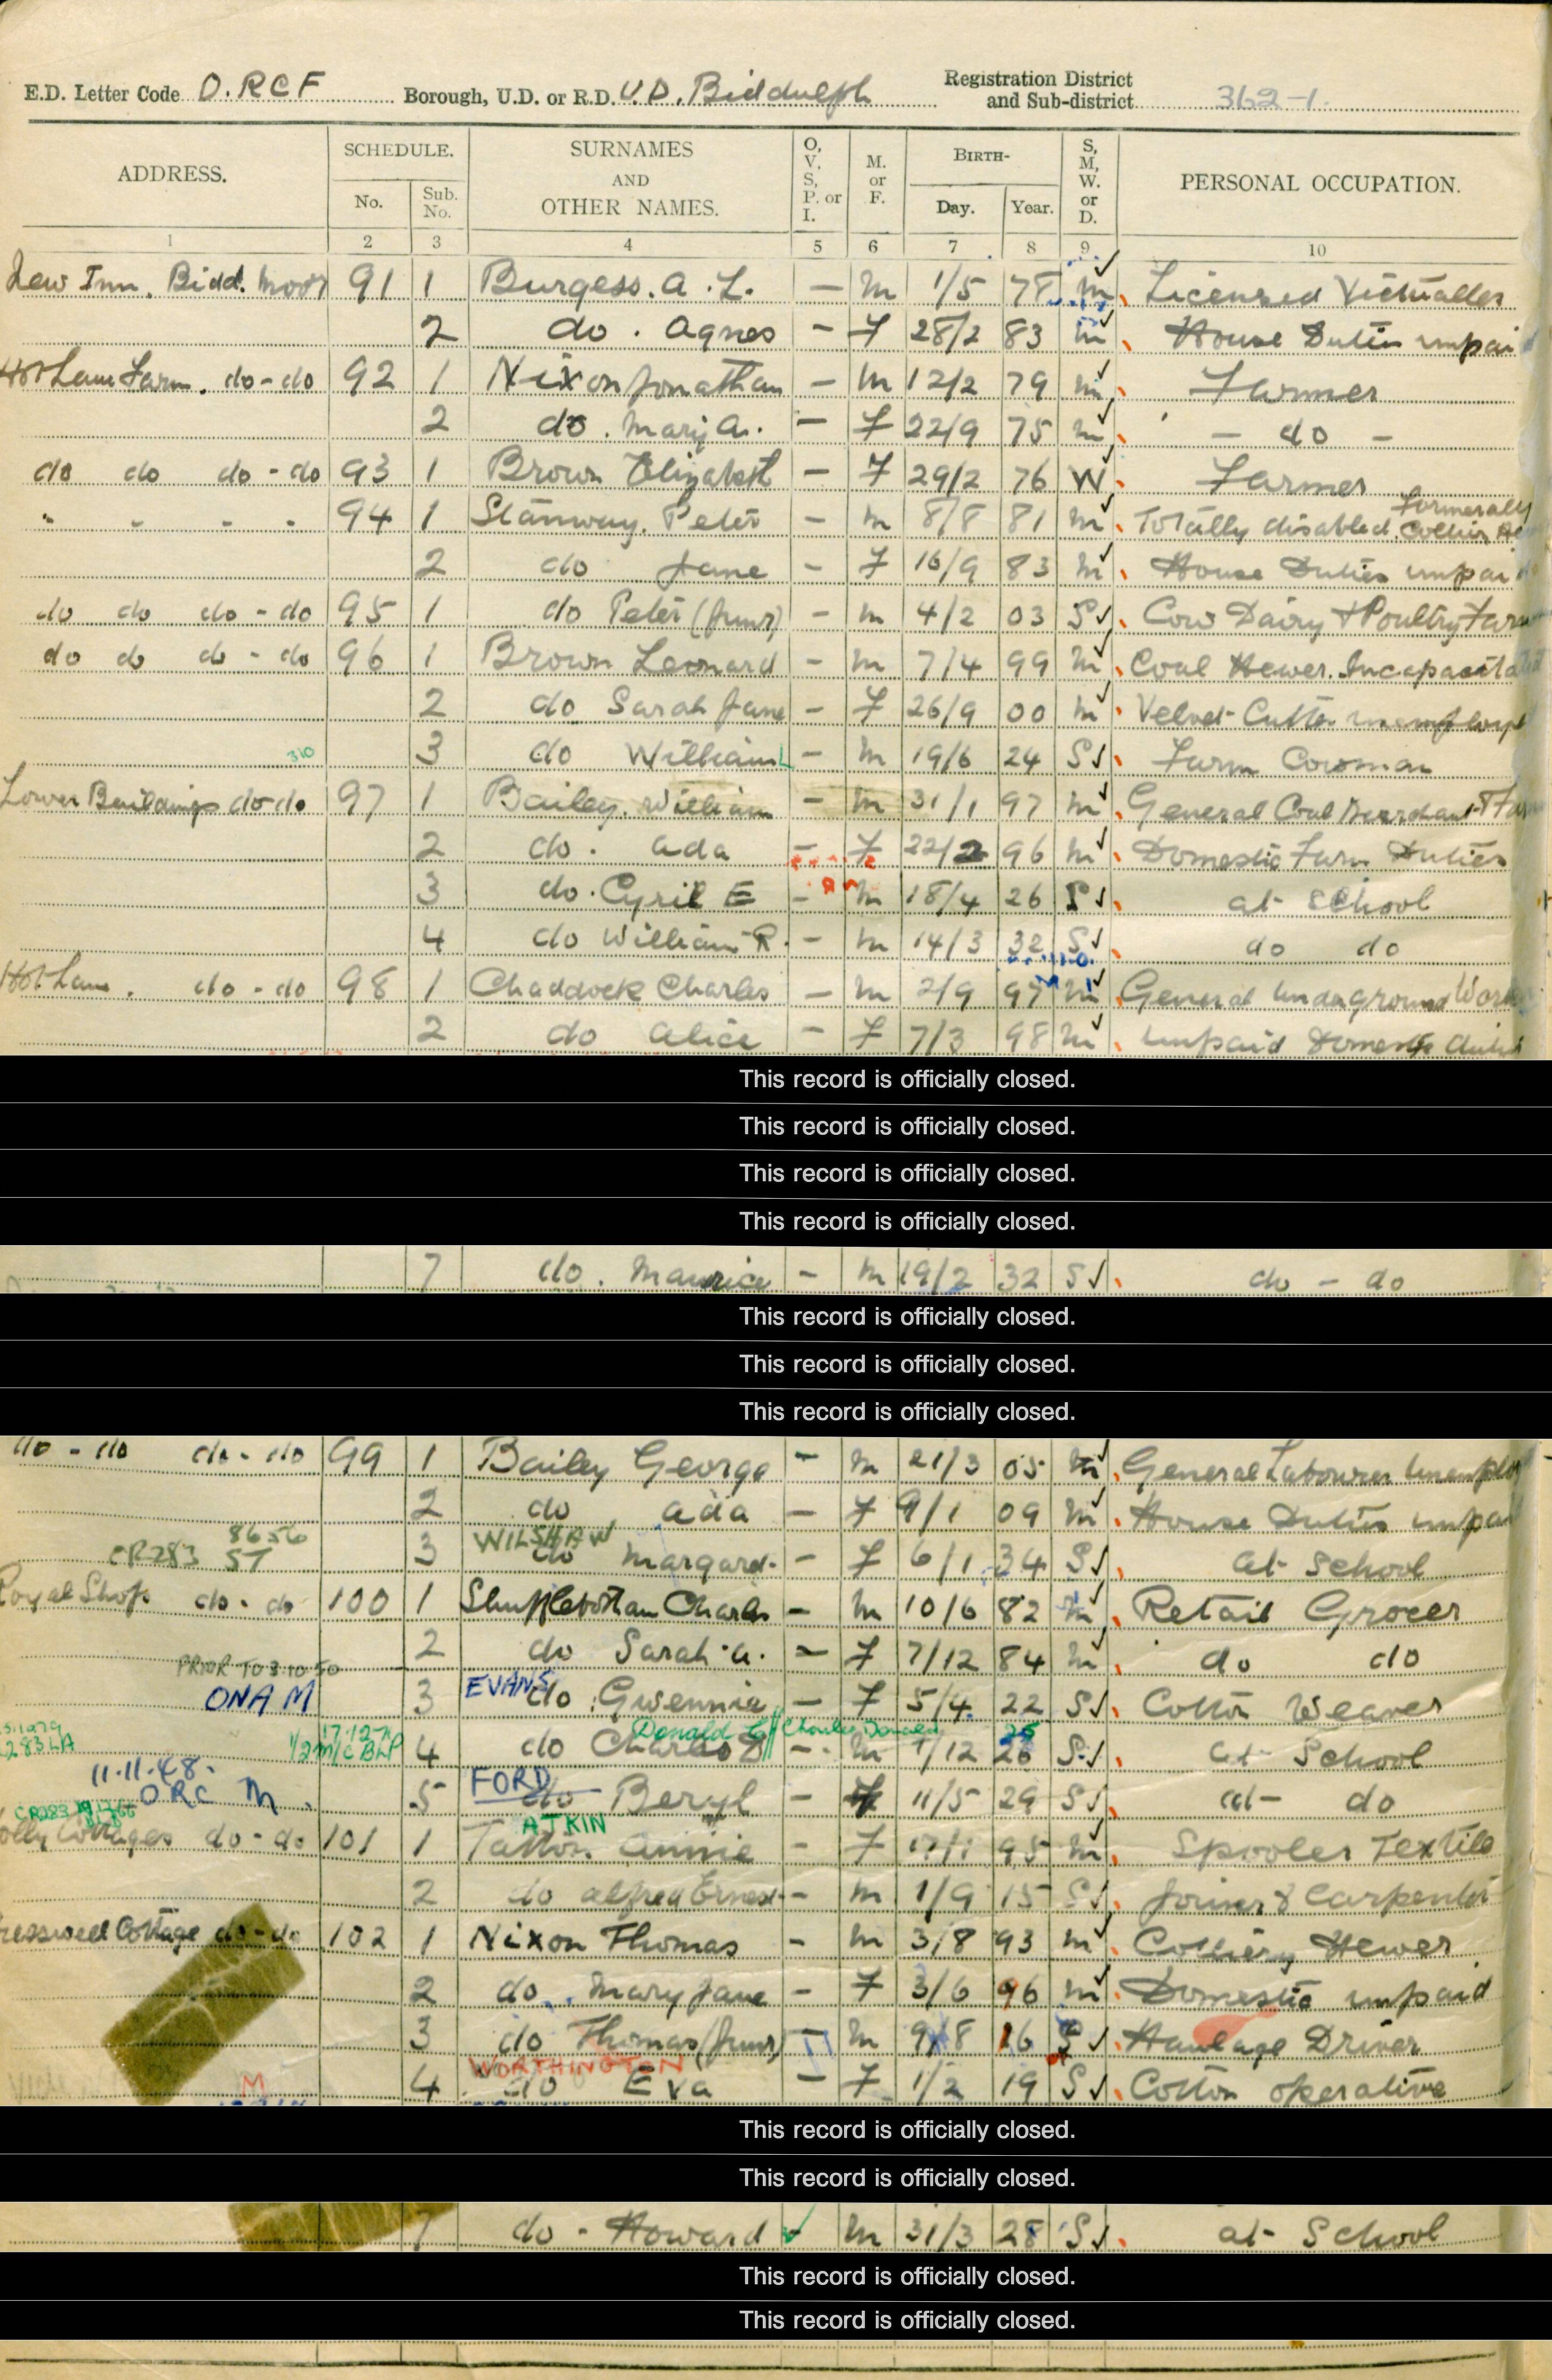 E.D. Letter Code O.RCF Borough, U.D. or R.D. U.D. Biddulph Registration District and Sub-district 362-1.
ADDRESS. SCHEDULE. No. Sub. No. SURNAMES AND OTHER NAMES. O, V, S, P. or I. M. or F. BIRTH- Day. Year. S, M, W. or D. PERSONAL OCCUPATION.
1 2 3 4 5 6 7 8 9 10
New Inn. Bidd. Moor 91 1 Burgess. A. L. - M 1/5 78 M Licensed Victualler
2 do. Agnes - F 28/2 83 M House Duties unpai
Hot Lane Farm. do-do 92 1 Nixon Jonathan - M 12/2 79 M Farmer
2 do. Mary A. - F 22/9 75 M - do -
do do do-do 93 1 Brown Elizabeth - F 29/2 76 W Farmer
" - - - 94 1 Stanway. Peter - M 8/8 81 M Totally disabled. Formerally Collier
2 do Jane - F 16/9 83 M House Duties unpai
do do do-do 95 1 do Peter (Junr) - M 4/2 03 S Cow Dairy & Poultry Farm
do do do-do 96 1 Brown Leonard - M 7/4 99 M Coal Hewer. Incapacitated
2 do Sarah Jane - F 26/9 00 M Velvet Cutter unemployed
310 3 do William L - M 19/6 24 S Farm Cowman
Lower Buildings do-do 97 1 Bailey. William - M 31/1 97 M General Coal Merchant & Farm
2 do. Ada - F 22/2 96 M Domestic Farm Duties
3 do. Cyril E - M 18/4 26 S at School
4 do William R. - M 14/3 32 S do do
Hot Lane. do-do 98 1 Chaddock Charles - M 2/9 97 M General Underground Work
2 do Alice - F 7/3 98 M unpaid Domestic duties
This record is officially closed.
This record is officially closed.
This record is officially closed.
This record is officially closed.
7 do. Maurice - M 19/2 32 S do - do
This record is officially closed.
This record is officially closed.
This record is officially closed.
do - do do-do 99 1 Bailey George - M 21/3 05 M General Labourer Unemploy
2 do Ada - F 9/1 09 M House Duties unpai
CR283 8656 ST 3 WILSHAW do Margaret - F 6/1 34 S at School
Royal Shop do-do 100 1 Shufflebottam Charles - M 10/6 82 M Retail Grocer
2 do Sarah A. - F 7/12 84 M do do
PRIOR TO 3.10.50 ONA M 3 EVANS do. Gwennie - F 5/4 22 S Cotton Weaver
Donald C // Charles Donald 25
283 LA 17.12.71 1/2 M/C BLP 4 do Charles D - M 1/12 26 S at School
11.11.48. ORC M. 5 FORD do Beryl - F 11/5 29 S at - do
CR283 ATKIN
olly Cottages do-do 101 1 Tatton Annie - F 95 M Spooler Textile
2 do Alfred Ernest - M 1/9 15 S Joiner & Carpenter
resswell Cottage do-do 102 1 Nixon Thomas - M 3/8 93 M Colliery Hewer
2 do. Mary Jane - F 3/6 96 M Domestic unpaid
3 do Thomas (Junr) - M 9/8 16 S Haulage Driver
M 4 WORTHINGTON do Eva - F 1/2 19 S Cotton operative
This record is officially closed.
This record is officially closed.
7 do - Howard - M 31/3 28 S at School
This record is officially closed.
This record is officially closed.